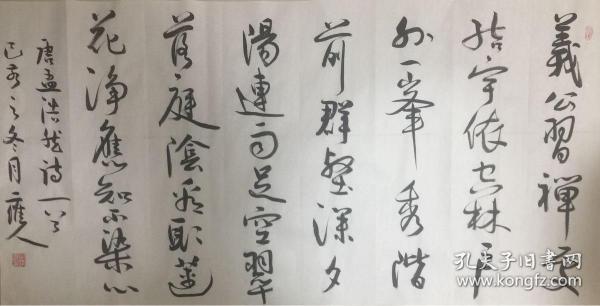 義公習禪寂
結宇依空林戶
外一峯秀階
前群壑深夕
陽連雨足空翠
落庭陰看取蓮
花淨應知不染心
唐孟浩然詩一首
己亥之冬月
孔夫子旧书网
www.kongfz.com